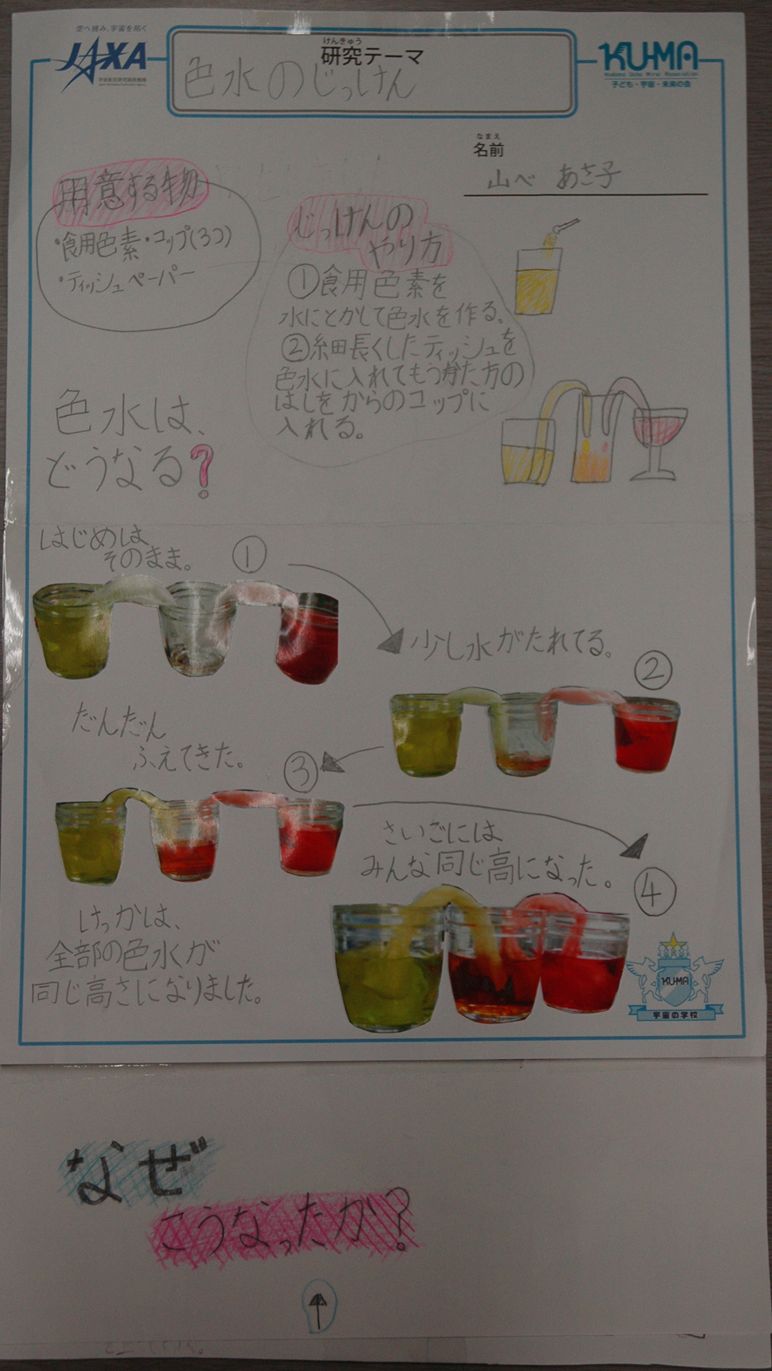 空へ挑み、宇宙を拓く
JAXA
けんきゅう
研究テーマ
色水のじっけん
KU-MA
Kodomo Uchu Mirai Association
子ども・宇宙・未来の会
なまえ
名前
山べ あさ子
用意する物
・食用色素・コップ(3つ)
・ティッシュペーパー
じっけんの
やり方
①食用色素を
水にとかして色水を作る。
②細長くしたティッシュを
色水に入れてもう片た方の
はしをからのコップに
入れる。
色水は、
どうなる?
はじめは
そのまま。
①
少し水がたれてる。
②
だんだん
ふえてきた。
③
さいごには
みんな同じ高になった。
④
けっかは、
全部の色水が
同じ高さになりました。
KU-MA
宇宙の学校
なぜ
こうなったか?
↑